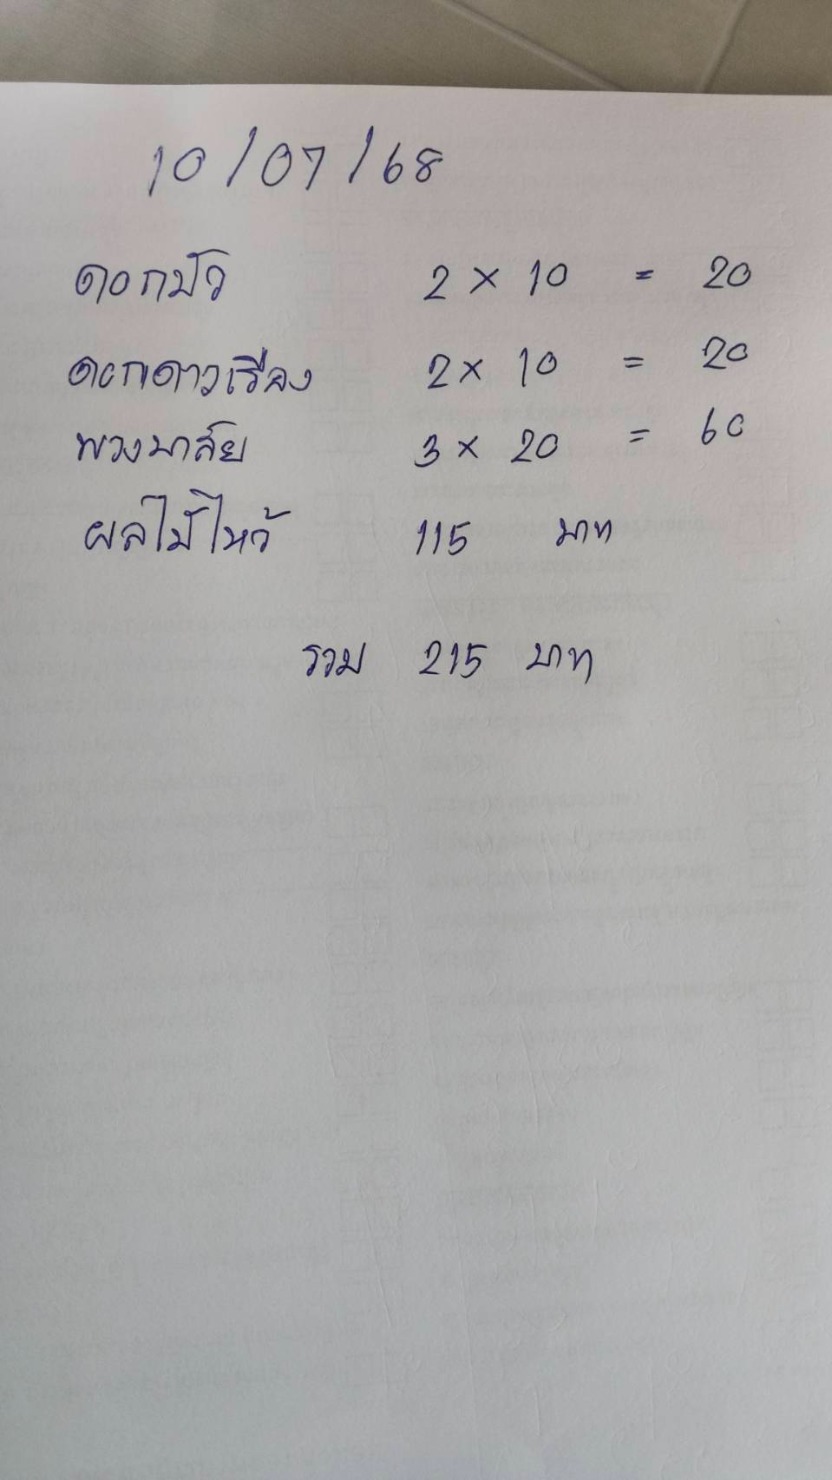 10/07/68
ดอกบัว 2 × 10 = 20
ดอกดาวเรือง 2 × 10 = 20
พวงมาลัย 3 × 20 = 60
ผลไม้ไหว้ 115 บาท
รวม 215 บาท